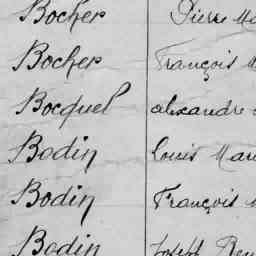 Bocher Pierre Ma
Bocher François M
Bocquel alexandre
Bodin Louis Mari
Bodin François M
Bodin Joseph René